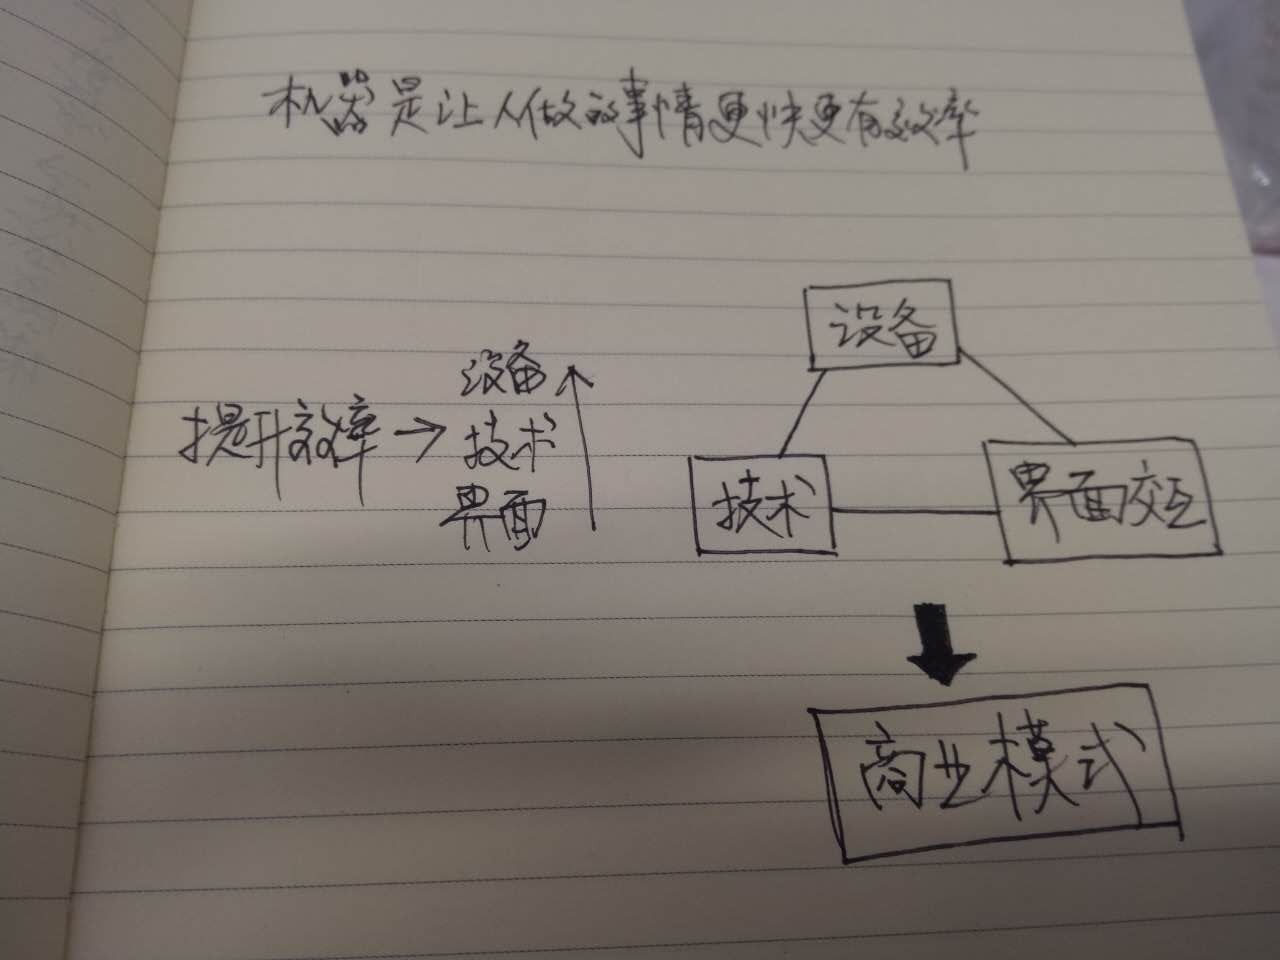 机器是让人做的事情更快更有效率
设备
提升效率→技术
界面
设备
技术
界面交互
商业模式